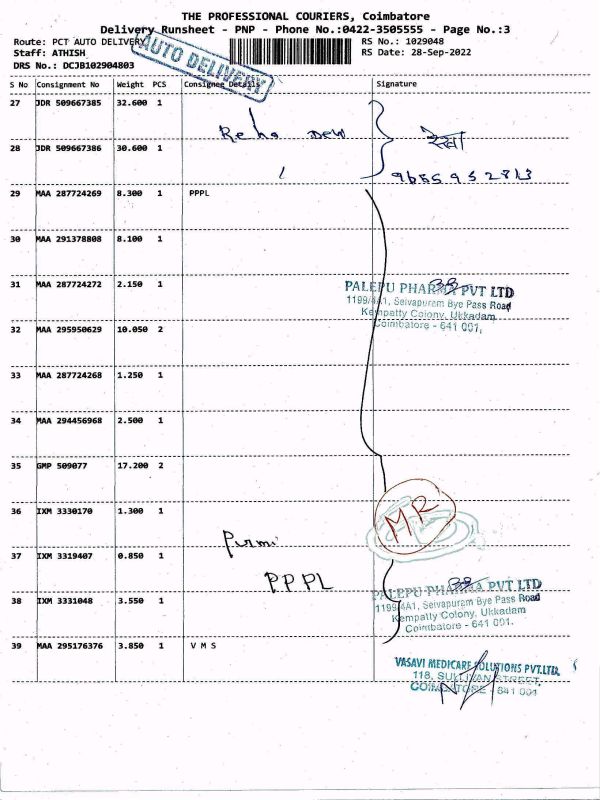 THE PROFESSIONAL COURIERS, Coimbatore
Delivery Runsheet - PNP - Phone No.:0422-3505555 - Page No.:3
Route: PCT AUTO DELIVERY
RS No.: 1029048
Staff: ATHISH
RS Date: 28-Sep-2022
DRS No.: DCJB102904803
AUTO DELIVERY
S No Consignment No Weight PCS Consignee Details Signature
27 JDR 509667385 32.600 1
रेखा
28 JDR 509667386 30.600 1
29 MAA 287724269 8.300 1 PPPL
30 MAA 291378808 8.100 1
31 MAA 287724272 2.150 1
PALEPU PHARMA PVT LTD
1199/4A1, Selvapuram Bye Pass Road
Kempatty Colony, Ukkadam
Coimbatore - 641 001,
32 MAA 295950629 10.050 2
33 MAA 287724268 1.250 1
34 MAA 294456968 2.500 1
35 GMP 509077 17.200 2
36 IXM 3330170 1.300 1
MR
37 IXM 3319407 0.850 1
PPPL
PALEPU PHARMA PVT LTD
1199/4A1, Selvapuram Bye Pass Road
Kempatty Colony, Ukkadam
Coimbatore - 641 001.
38 IXM 3331048 3.550 1
39 MAA 295176376 3.850 1 V M S
VASAVI MEDICARE SOLUTIONS PVT.LTD.
118, SULLIVAN STREET,
COIMBATORE - 641 001